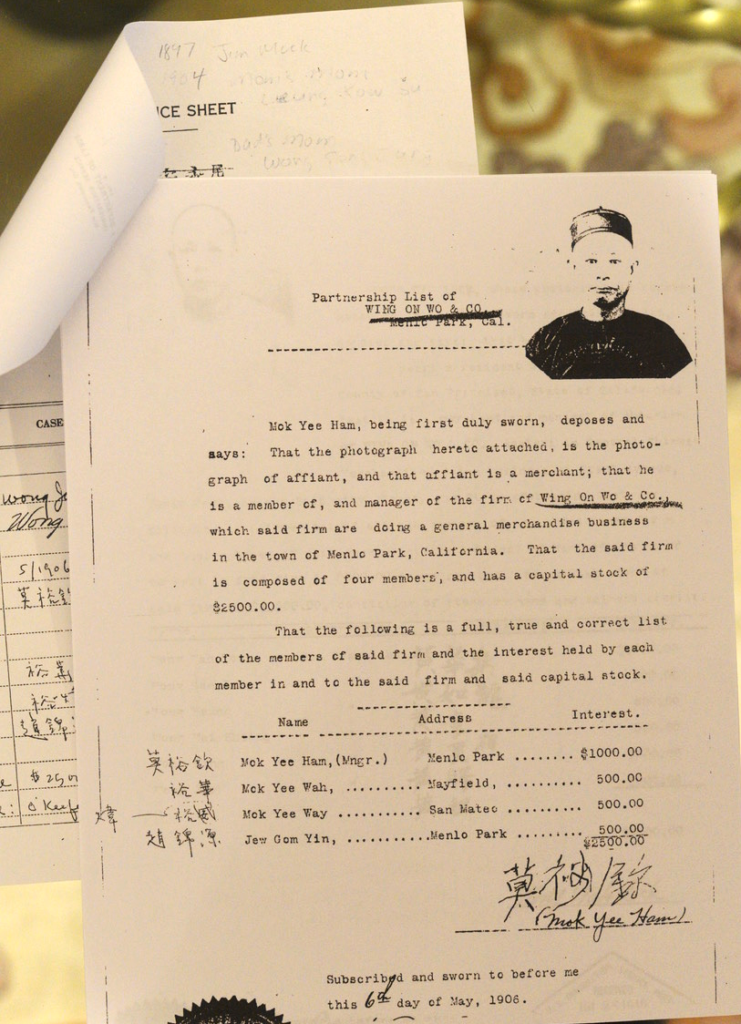 1897 Jum Mock
1904
ICE SHEET
Dad's Mom
Wong
Partnership List of
WING ON WO & CO.,
Menlo Park, Cal.
Mok Yee Ham, being first duly sworn, deposes and
says: That the photograph hereto attached, is the photo-
graph of affiant, and that affiant is a merchant; that he
is a member of, and manager of the firm of Wing On Wo & Co.,
which said firm are doing a general merchandise business
in the town of Menlo Park, California. That the said firm
is composed of four members, and has a capital stock of
$2500.00.
That the following is a full, true and correct list
of the members of said firm and the interest held by each
member in and to the said firm and said capital stock.
Name Address Interest.
莫裕欽 Mok Yee Ham,(Mngr.) Menlo Park ........ $1000.00
裕華 Mok Yee Wah, .......... Mayfield, .......... 500.00
煒 一 裕威 Mok Yee Way .......... San Mateo .......... 500.00
趙錦源 Jew Gom Yin, ...........Menlo Park ......... 500.00
$2500.00
莫裕欽
(Mok Yee Ham)
Subscribed and sworn to before me
this 6th day of May, 1906.
CASE
Wong
Wong
5/1906
莫裕欽
裕華
裕
趙錦
$2500
O'Keef